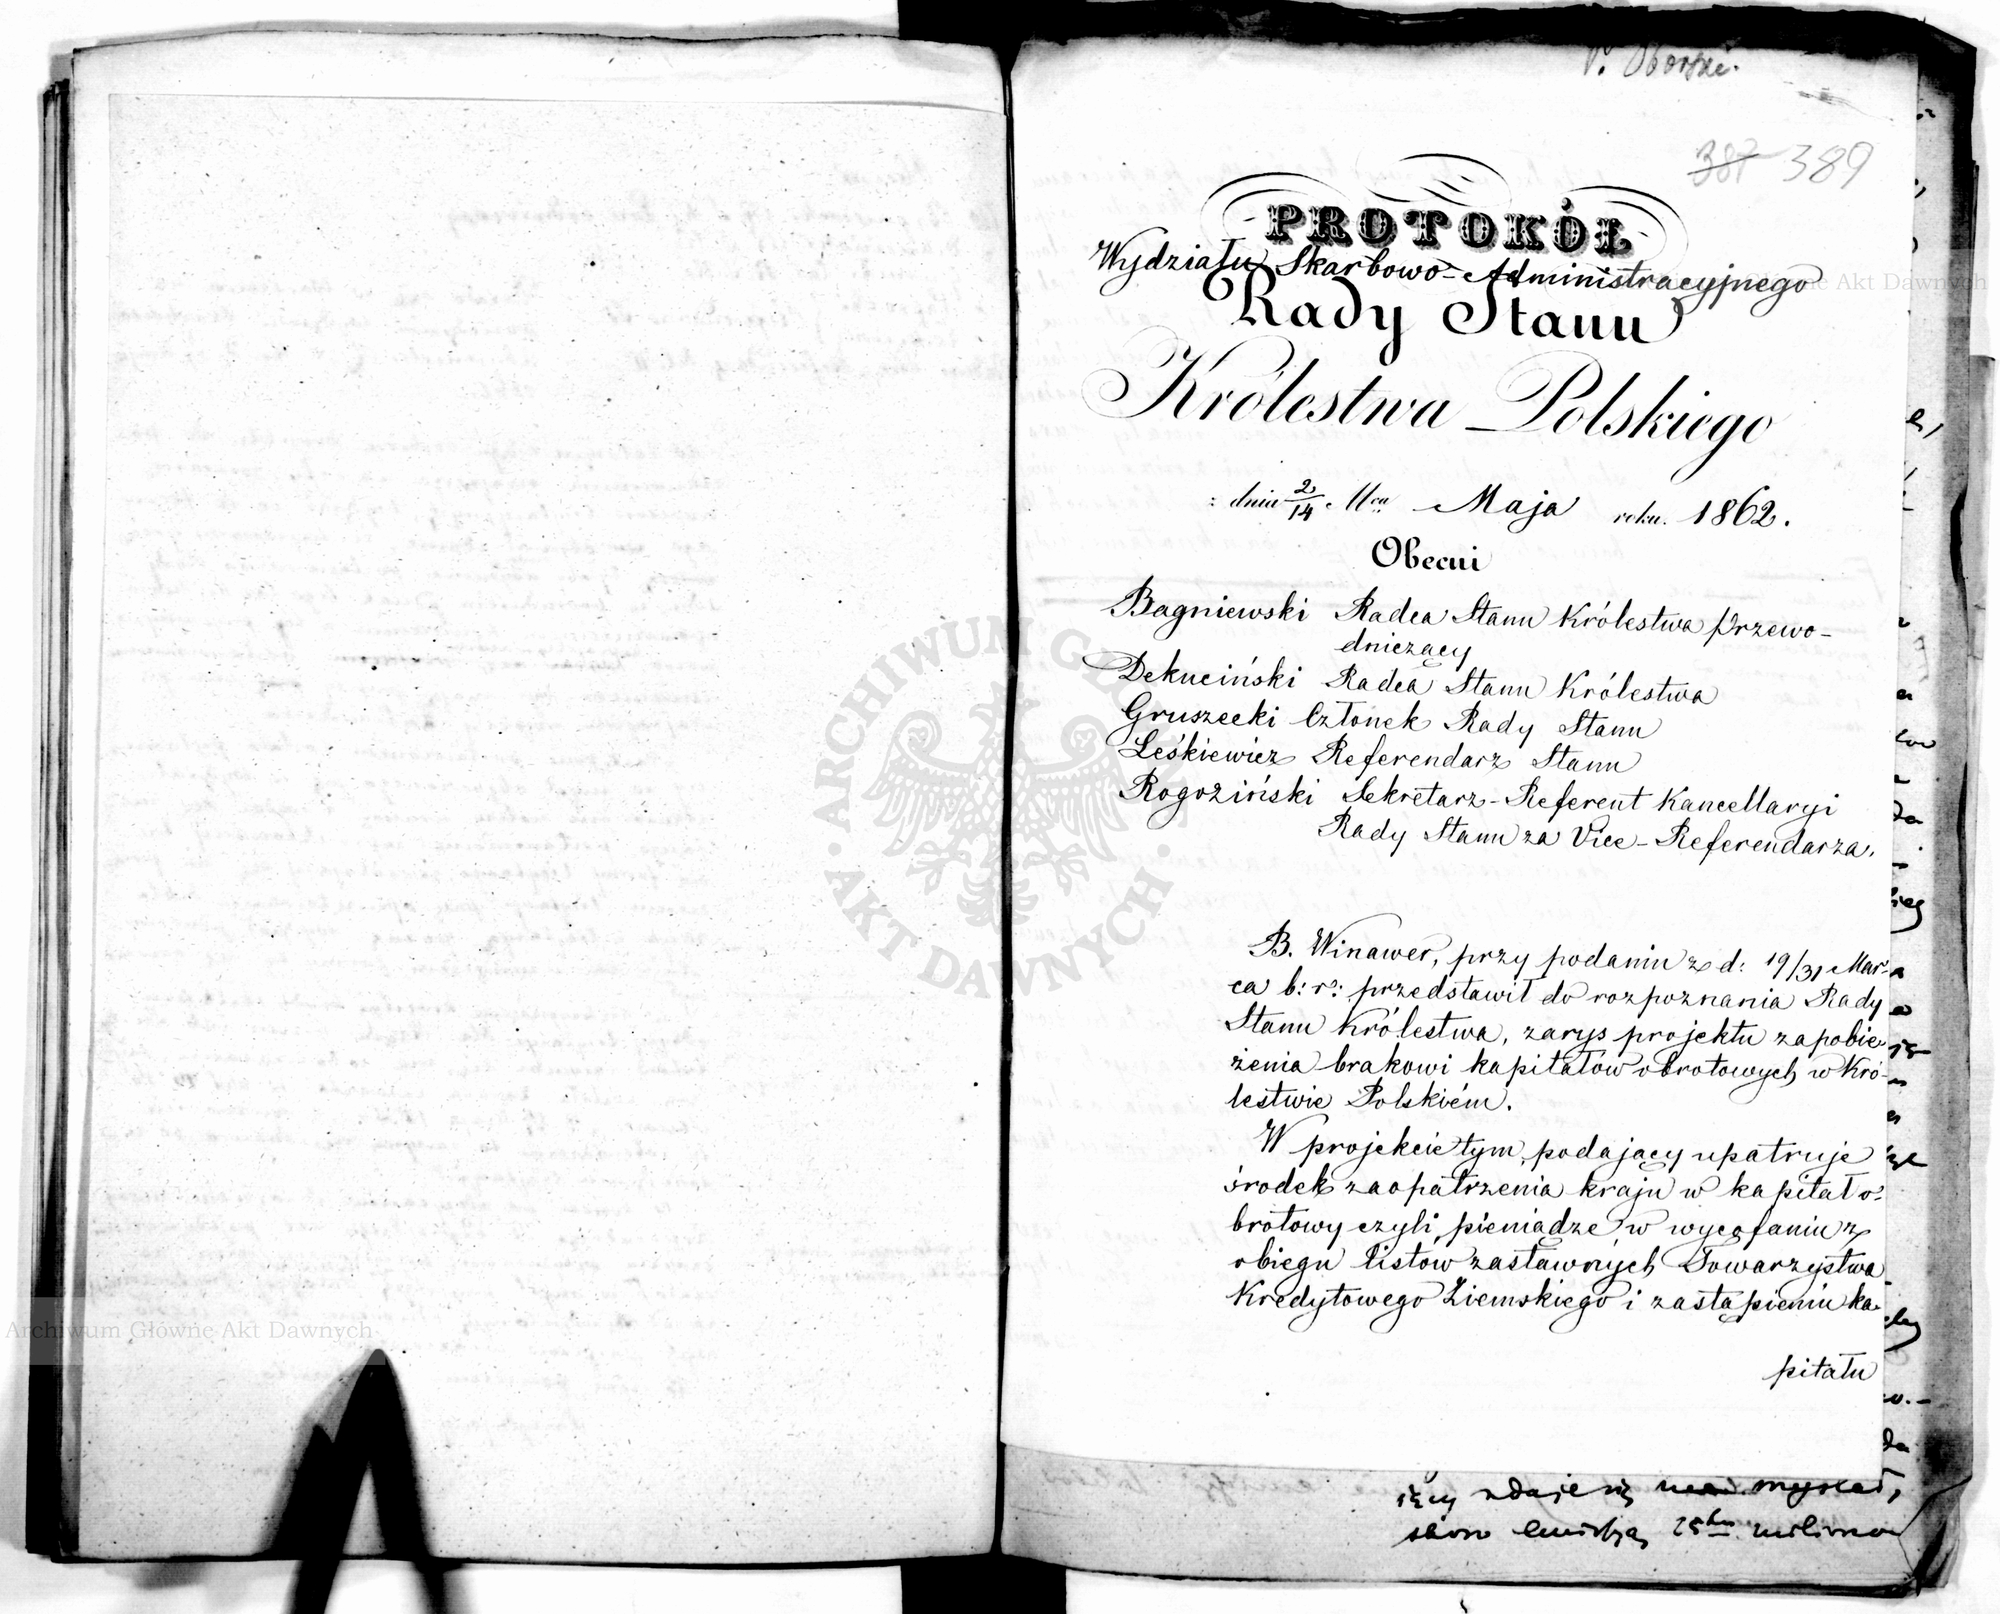 387 389
PROTOKÓŁ
Wydziału Skarbowo-Administracyjnego
Rady Stanu
Królestwa Polskiego
dnia 2/14 Mca Maja roku 1862.
Obecni
Bagniewski Radca Stanu Królestwa Przewo-
dniczący
Dekuciński Radca Stanu Królestwa
Gruszecki Członek Rady Stanu
Leśkiewicz Referendarz Stanu
Rogoziński Sekretarz-Referent Kancellaryi
Rady Stanu za Vice-Referendarza.
B. Winawer, przy podaniu z d: 19/31 Mar-
ca b: r: przedstawił do rozpoznania Rady
Stanu Królestwa, zarys projektu zapobie-
żenia brakowi kapitałów obrotowych w Kró-
lestwie Polskiém.
W projekcie tym, podający upatruje
środek zaopatrzenia kraju w kapitał o-
brotowy czyli pieniądze w wycofaniu z
obiegu listów zastawnych Towarzystwa
Kredytowego Ziemskiego i zastąpieniu ka-
pitału
zdaje się
25 miliono
ARCHIWUM GŁÓWNE
AKT DAWNYCH
Archiwum Główne Akt Dawnych
Archiwum Główne Akt Dawnych